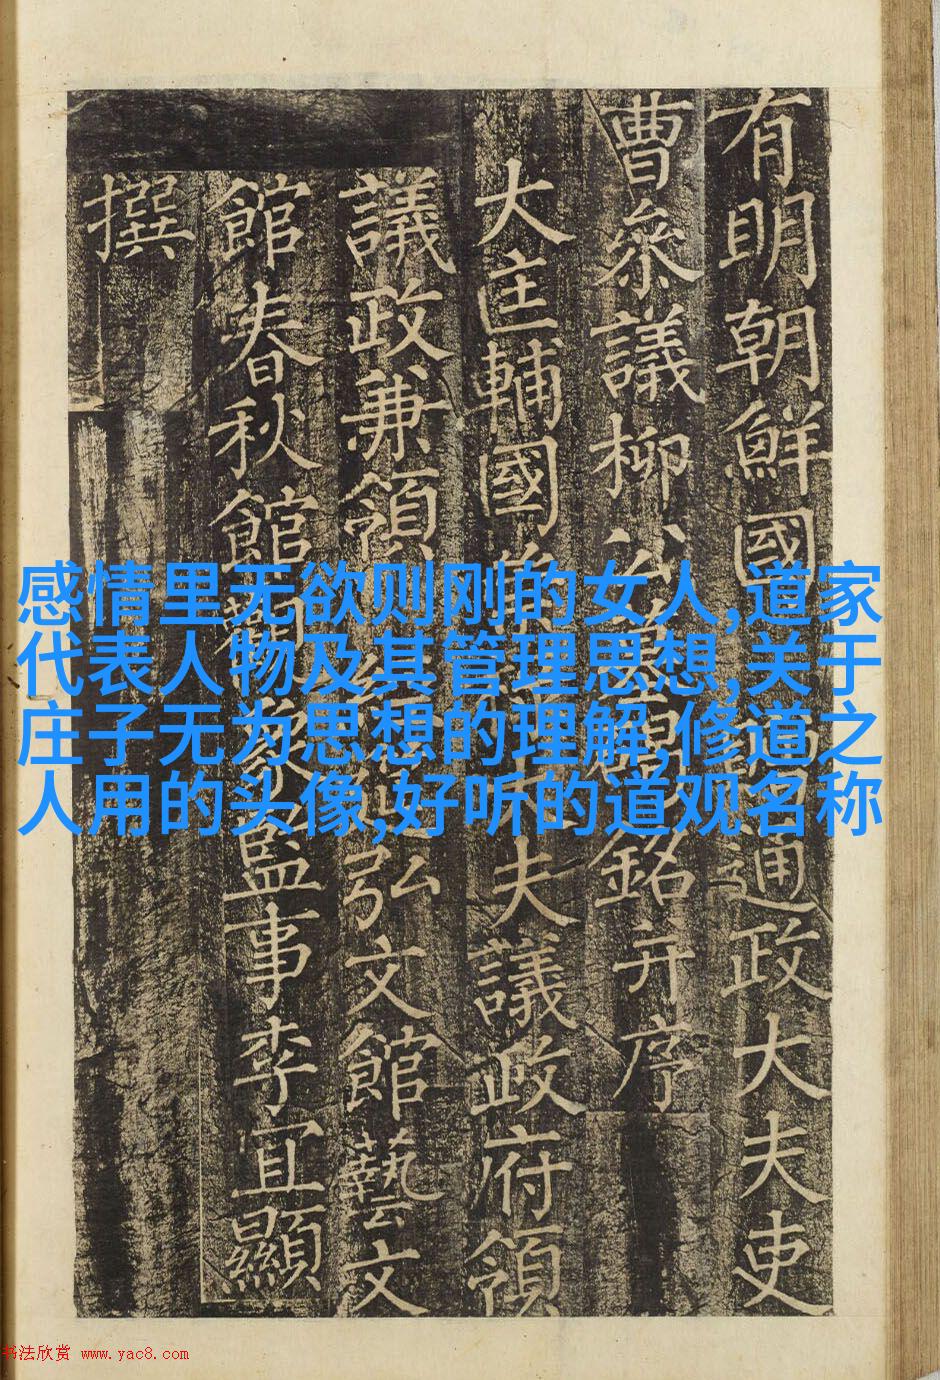 有明朝鮮國通政大夫吏
曹叅議柳公銘并序
大匡輔國夫議政府領
議政兼領弘文館藝文
館春秋館觀象監事李宜顯
撰
感情里无欲则刚的女人,道家
代表人物及其管理思想,关于
庄子无为思想的理解,修道之
人用的头像,好听的道观名称
书法欣赏 www.yac8.com